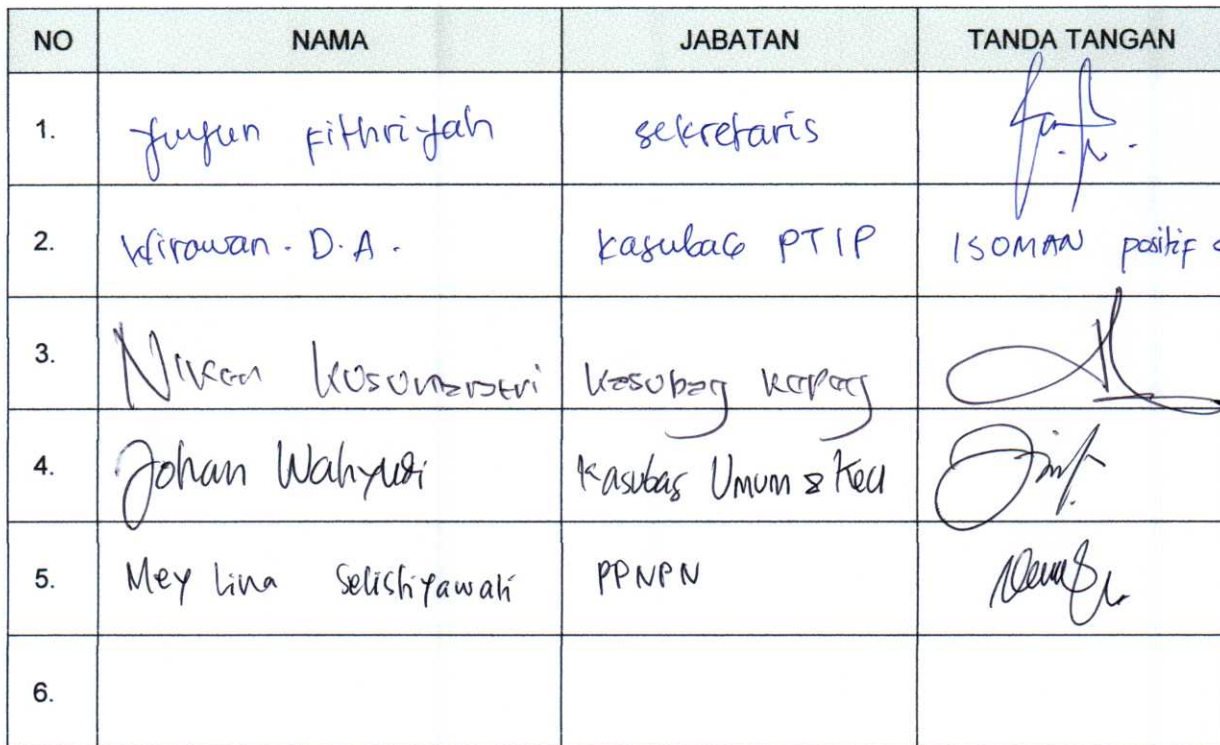 NO NAMA JABATAN TANDA TANGAN
1. Yuyun Fithriyah sekretaris
2. Wirawan . D . A . KasubaG PTIP ISOMAN positif
3. Niken Kusumastri Kasubag Kepeg
4. Johan Wahyudi Kasubag Umum & Keu
5. Mey Lina Selistiyawati PPNPN
6.